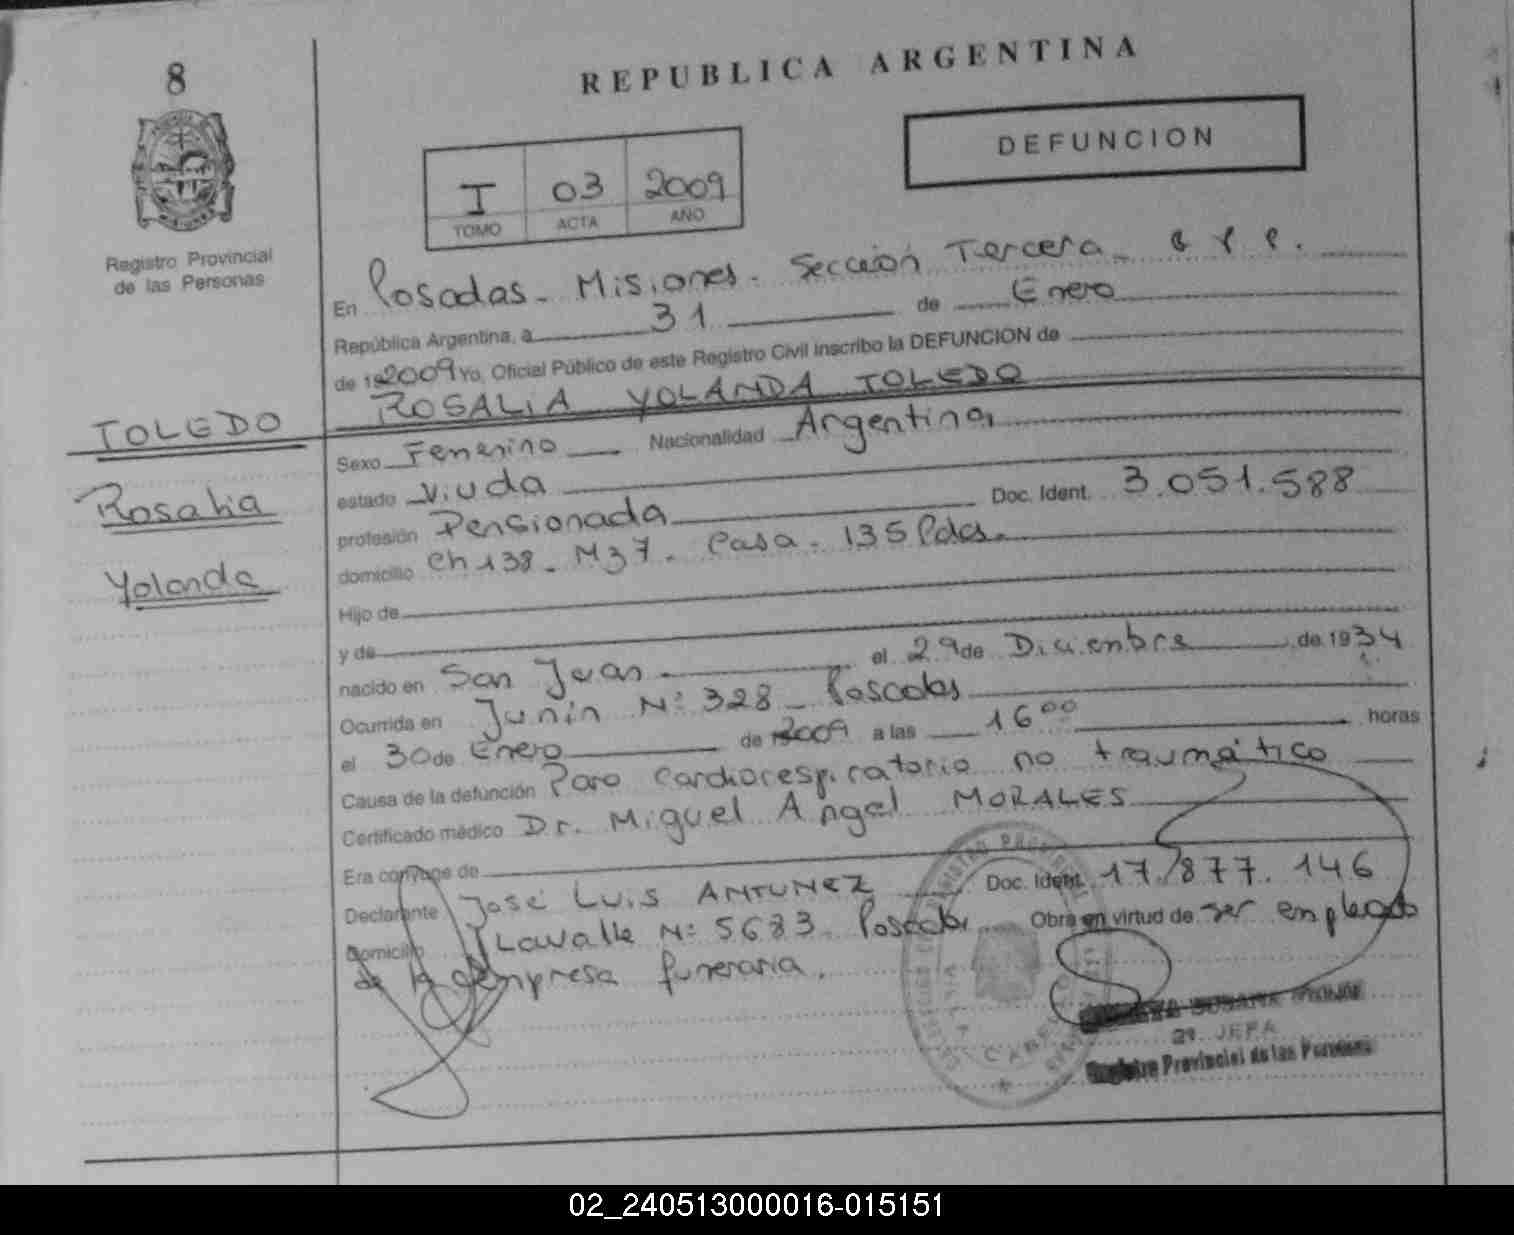 8
REPUBLICA ARGENTINA
DEFUNCION
I 03 2009
TOMO ACTA AÑO
Registro Provincial
de las Personas
En Posadas - Misiones - Sección Tercera
República Argentina, a 31 de Enero
de 19 2009 Yo, Oficial Público de este Registro Civil inscribo la DEFUNCION de
ROSALIA YOLANDA TOLEDO
TOLEDO
Rosalia
Yolanda
Sexo Femenino Nacionalidad Argentina
estado Viuda
profesión Pensionada Doc. Ident. 3.051.588
domicilio Ch 138 - M37 - Casa - 135 Pdas.
Hijo de
y de
nacido en San Juan el 29 de Diciembre de 1934
Ocurrida en Junín Nº 328 - Posadas
el 30 de Enero de 2009 a las 16 00 horas
Causa de la defunción Paro cardiorespiratorio no traumático
Certificado médico Dr. Miguel Angel MORALES
Era cónyuge de
Declarante José Luis ANTUNEZ Doc. Ident. 17.877.146
Domicilio Lavalle Nº 5683 - Posadas Obra en virtud de ser empleado
de la empresa funeraria.
2ª JEFA
Registro Provincial de las Personas
02_240513000016-015151